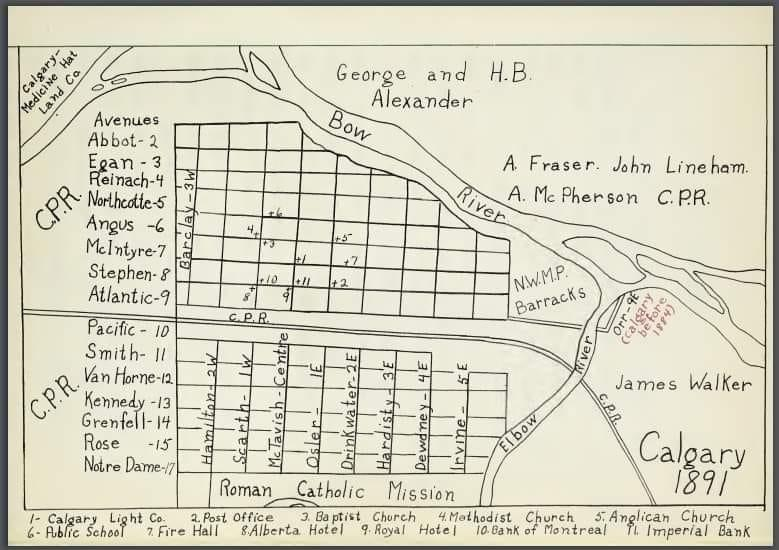 Calgary-
Medicine Hat
Land Co.
George and H.B.
Alexander
Avenues
Abbot - 2
Egan - 3
Reinach - 4
Northcotte - 5
Angus - 6
McIntyre - 7
Stephen - 8
Atlantic - 9
C.P.R.
Barclay - 3W
Bow
River
A. Fraser. John Lineham.
A. McPherson C.P.R.
+6
4+
+3
+5
+1
+7
+10
+11
+2
8
9
N.W.M.P.
Barracks
Orr - 9E
(Calgary
before
1884)
C.P.R.
Pacific - 10
Smith - 11
Van Horne - 12
Kennedy - 13
Grenfell - 14
Rose - 15
Notre Dame - 17
C.P.R.
Hamilton - 2W
Scarth - 1W
McTavish - Centre
Osler - 1E
Drinkwater - 2E
Hardisty - 3E
Dewdney - 4E
Irvine - 5E
Elbow
River
C.P.R.
James Walker
Calgary
1891
Roman Catholic Mission
1- Calgary Light Co. 2. Post Office 3. Baptist Church 4. Methodist Church 5. Anglican Church
6- Public School 7. Fire Hall 8. Alberta Hotel 9. Royal Hotel 10. Bank of Montreal 11. Imperial Bank